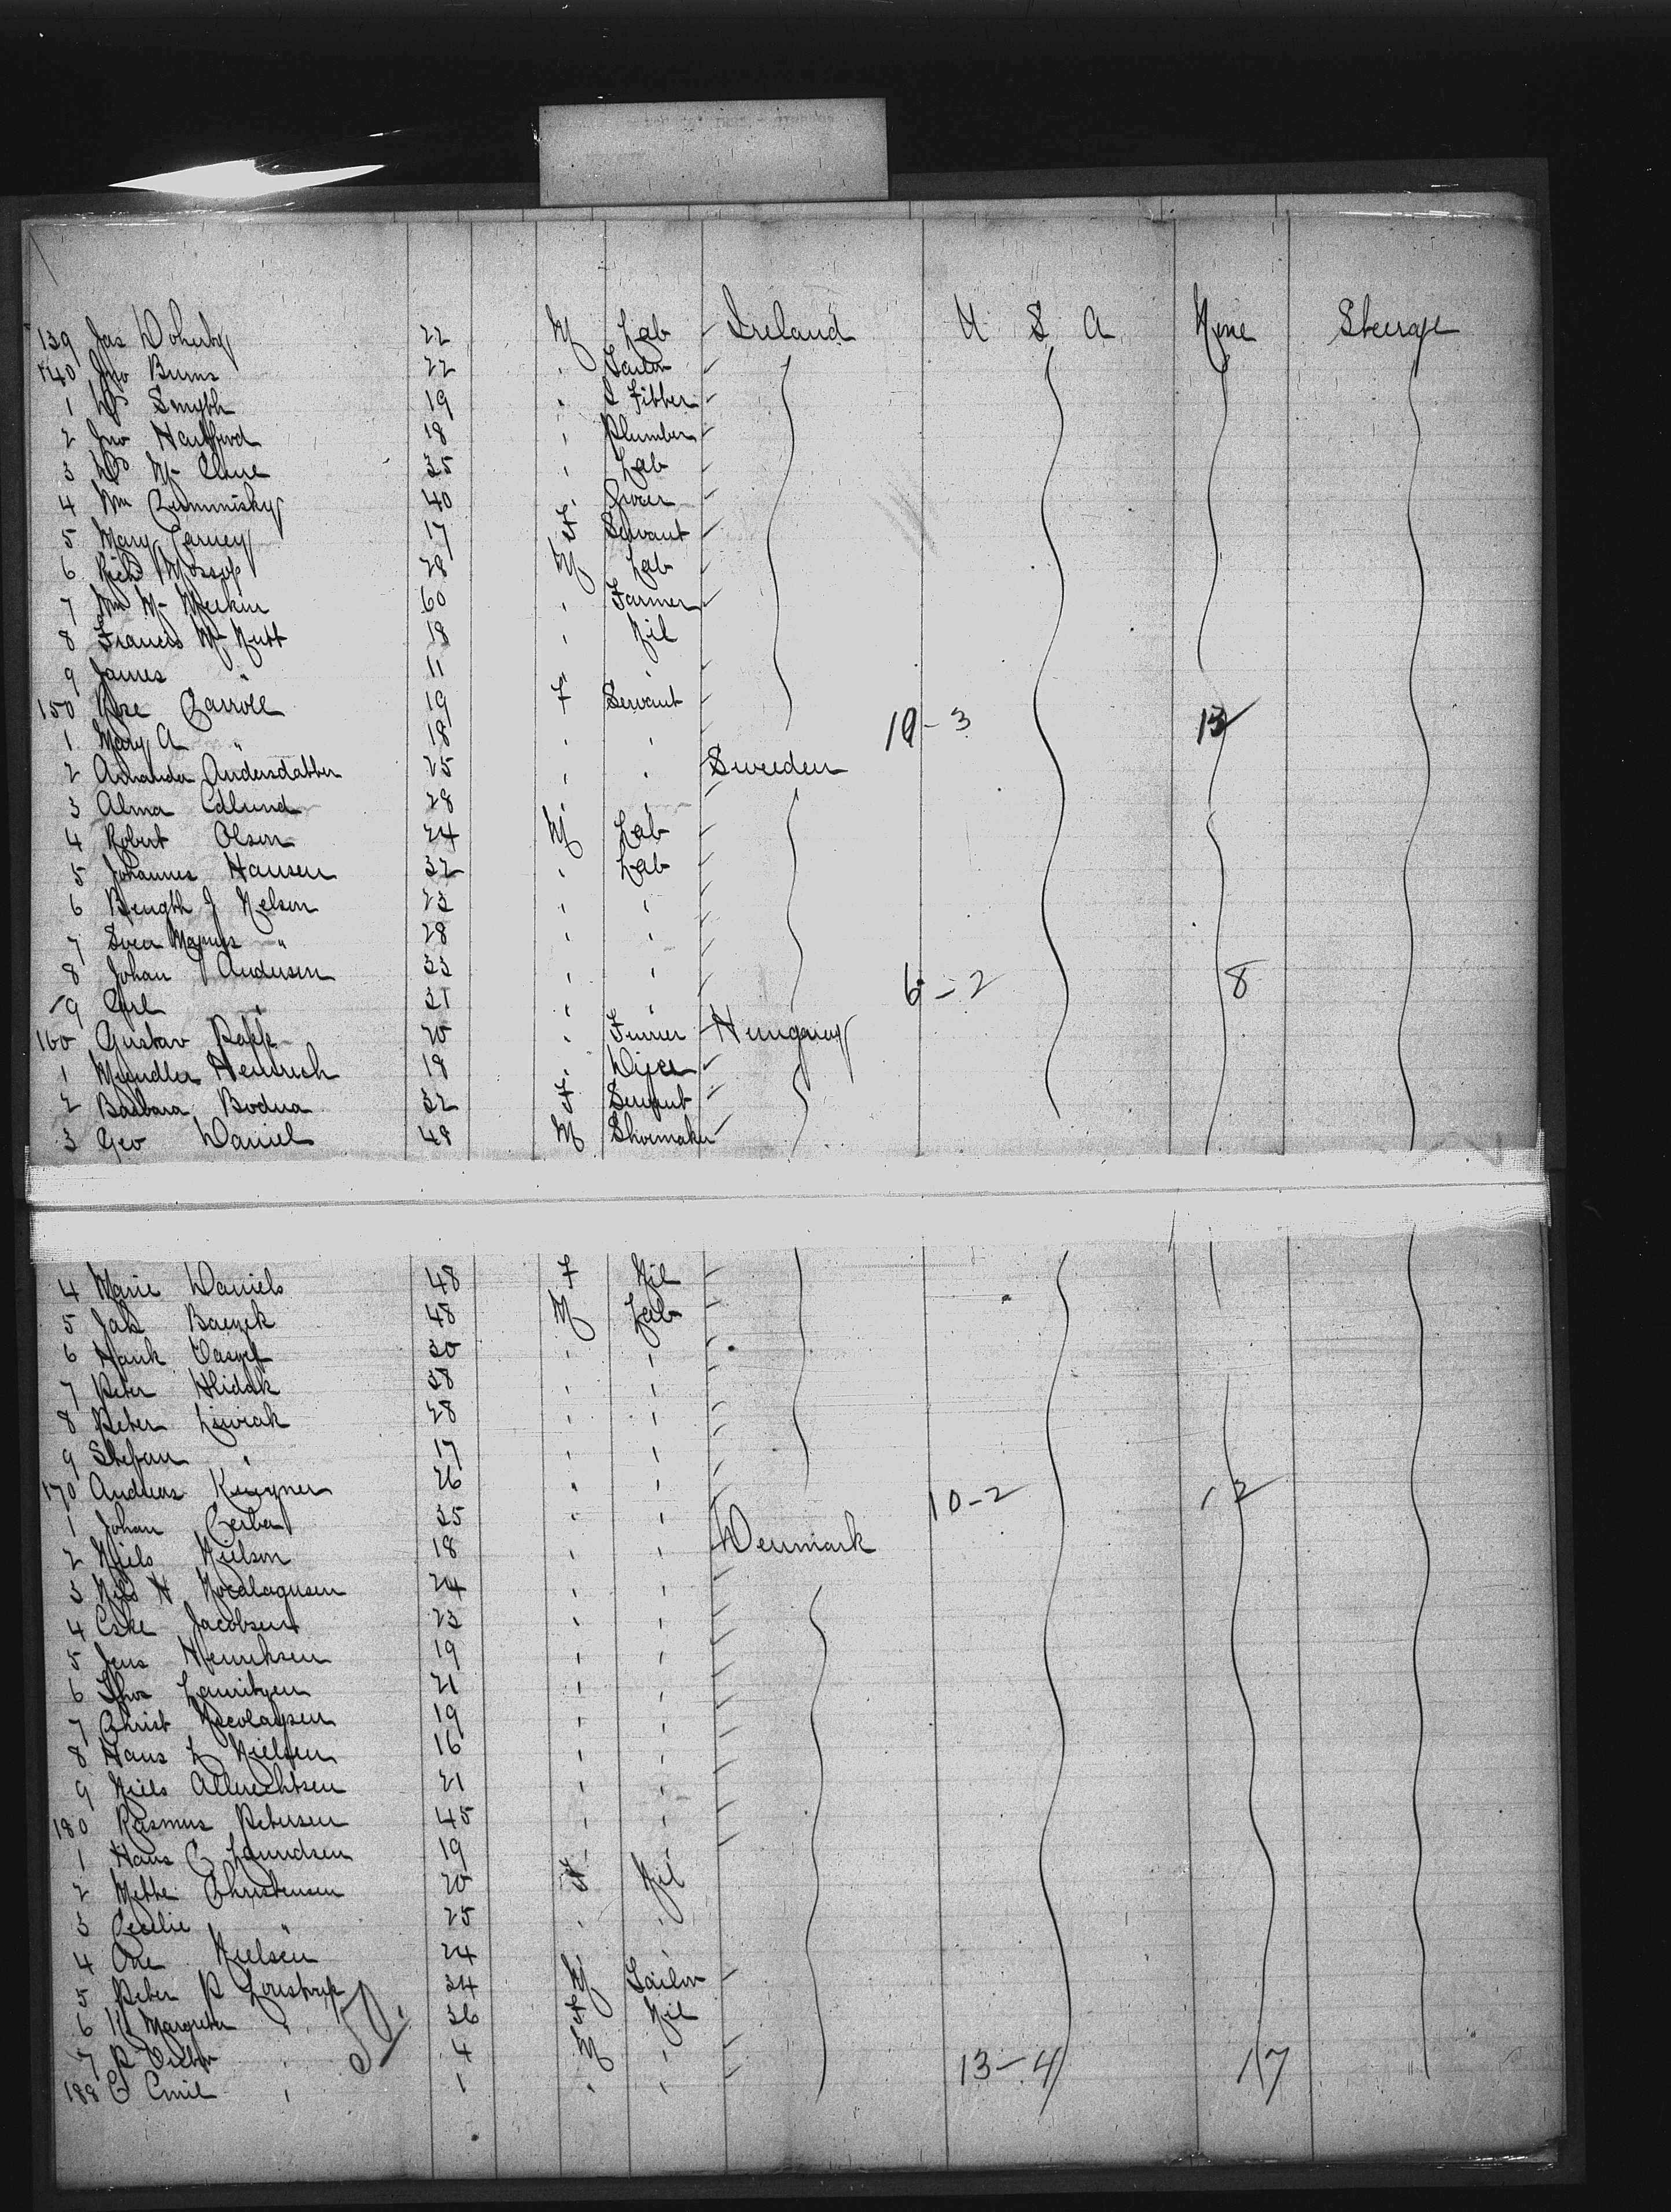 139 Jas Doherty 22 M Lab Ireland U S A None Steerage
140 Jno Burns 22 " Tailor
1 Wm Smyth 19 " S Fitter
2 Jno Hartford 18 " Plumber
3 Wm Mc Clure 35 " Lab
4 Wm Cummisky 40 "
5 Mary Carney 17 F Servant
6 Richd Mossop 28 M Lab
7 Wm Mc 60 " Farmer
8 Francis Mc Nutt 18 " Nil
9 James " 11 "
150 Rose Carroll 19 F Servant
1 Mary A " 18 " " 10-3 13
2 Amanda Andersdatter 25 " " Sweden
3 Alma Edlund 28 " "
4 Robert Olson 24 M Lab
5 Johannes Hansen 32 " Lab
6 Bength J Nelson 23 " "
7 Sven Magnus " 28 " "
8 Johan Anderson 33 " " 6-2 8
9 Carl " 31 " "
160 Gustav Papp 20 " Hungary
1 Heinrich 18 "
2 Barbara Bodna 32 F Servant
3 Geo Daniel 48 M Shoemaker
4 Marie Daniels 48 F Nil
5 Jak 48 M Lab
6 30 " "
7 Peter Hlidak 38 " "
8 Peter 28 " "
9 Stefan " 17 " "
170 Andreas 26 " " 10-2 12
1 Johan 35 " "
2 Niels Nielson 18 " " Denmark
3 Nils H 24 " "
4 Eske Jacobsen 23 " "
5 Jens Henriksen 19 " "
6 Thos Lauritzen 21 " "
7 Christ Nicolaysen 19 " "
8 Hans L Nielsen 16 " "
9 Niels Albrechtsen 21 " "
180 Rasmus Petersen 45 " "
1 Hans C 19 " "
2 Mette Christensen 20 F Nil
3 Cecelie " 25 " "
4 Ane Nielsen 24 "
5 Peter P 34 M Tailor
6 Margreta " 36 F Nil
7 P " 4 M " 13-4 17
188 C Emil " 1 " "